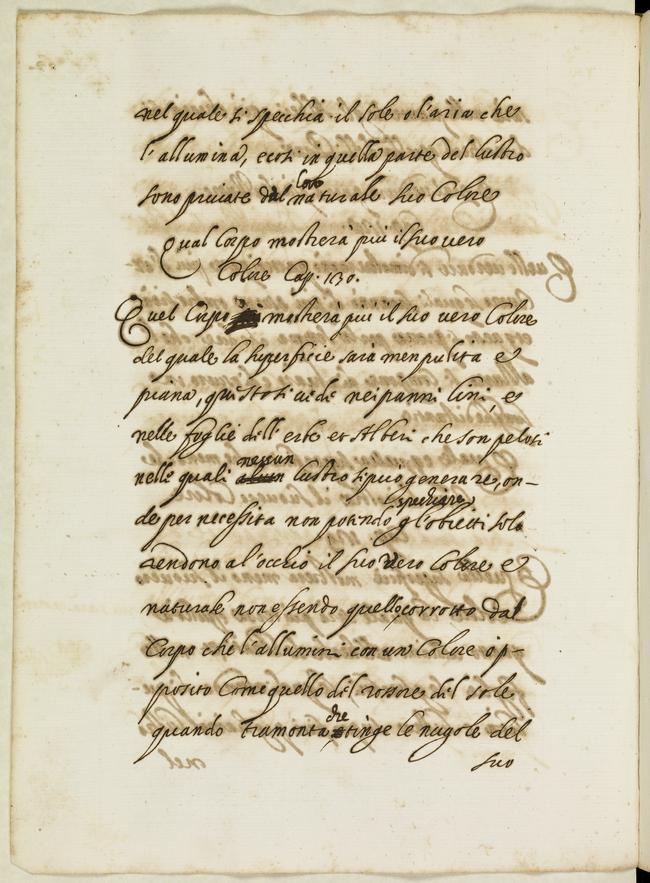 nel quale si specchia il sole o l'aria che
l'allumina, e così in quella parte del lustro
sono private dal loro naturale suo Colore
Qual Corpo mostrerà più il suo vero
Colore Cap. 130.
Quel Corpo mostrerà più il suo vero Colore
del quale la superficie sarà men pulita e
piana, questo si vede nei panni lini, e
nelle foglie dell'erbe et Alberi che son pelosi
nelle quali nessun lustro si può generare, on-
de per necessità non potendo specchiare gl'obietti solo
rendono al'occhio il suo vero Colore e
naturale non essendo quello corrotto dal
Corpo che l'allumini con un Colore op-
posito Come quello del rossore del sole
quando tramonta che tinge le nugole del
suo